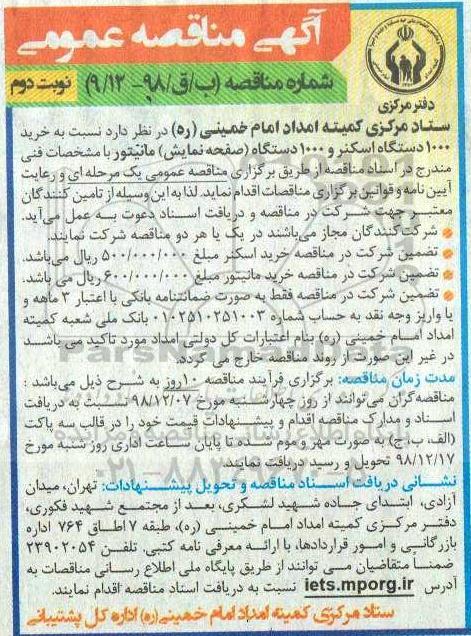 آگهی مناقصه عمومی
شماره مناقصه (ب/ق/۹۸- ۹/۱۲)
نوبت دوم
دفتر مرکزی
ستاد مرکزی کمیته امداد امام خمینی (ره) در نظر دارد نسبت به خرید
۱۰۰۰ دستگاه اسکنر و ۱۰۰۰ دستگاه (صفحه نمایش) مانیتور با مشخصات فنی
مندرج در اسناد مناقصه از طریق برگزاری مناقصه عمومی یک مرحله ای و رعایت
آیین نامه و قوانین برگزاری مناقصات اقدام نماید. لذا به این وسیله از تامین کنندگان
معتبر جهت شرکت در مناقصه و دریافت اسناد دعوت به عمل می‌آید.
شرکت‌کنندگان مجاز می‌باشند در یک یا هر دو مناقصه شرکت نمایند.
تضمین شرکت در مناقصه خرید اسکنر مبلغ ۵۰۰/۰۰۰/۰۰۰ ریال می‌باشد.
تضمین شرکت در مناقصه خرید مانیتور مبلغ ۶۰۰/۰۰۰/۰۰۰ ریال می باشد.
تضمین شرکت در مناقصه فقط به صورت ضمانتنامه بانکی با اعتبار ۳ ماهه و
یا واریز وجه نقد به حساب شماره ۰۱۰۲۵۱۰۲۵۱۰۰۳ بانک ملی شعبه کمیته
امداد امام خمینی (ره) بنام اعتبارات کل دولتی امداد مورد تاکید می باشد
در غیر این صورت از روند مناقصه خارج می گردد.
مدت زمان مناقصه: برگزاری فرآیند مناقصه ۱۰روز به شرح ذیل می‌باشد :
مناقصه‌گران می‌توانند از روز چهارشنبه مورخ ۹۸/۱۲/۰۷ نسبت به دریافت
اسناد و مدارک مناقصه اقدام و پیشنهادات قیمت خود را در قالب سه پاکت
(الف، ب، ج) به صورت مهر و موم شده تا پایان ساعت اداری روز شنبه مورخ
۹۸/۱۲/۱۷ تحویل و رسید دریافت نمایند.
نشانی دریافت اسناد مناقصه و تحویل پیشنهادات: تهران، میدان
آزادی، ابتدای جاده شهید لشکری، بعد از مجتمع شهید فکوری،
دفتر مرکزی کمیته امداد امام خمینی (ره)، طبقه ۷ اطاق ۷۶۴ اداره
بازرگانی و امور قراردادها، با ارائه معرفی نامه کتبی. تلفن ۲۳۹۰۲۰۵۴
ضمنا متقاضیان می توانند از طریق پایگاه ملی اطلاع رسانی مناقصات به
آدرس iets.mporg.ir نسبت به دریافت اسناد مناقصه اقدام نمایند.
ستاد مرکزی کمیته امداد امام خمینی(ره) اداره کل پشتیبانی